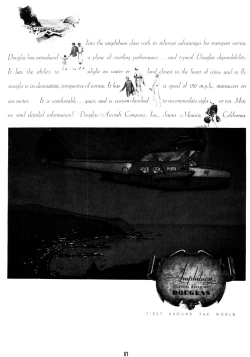 Into the amphibian class with its inherent advantages for transport service
Douglas has introduced a plane of startling performance ... and typical Douglas dependability.
It has the ability to alight on water or land closest to the heart of cities, and to fly
straight to its destination, irrespective of terrain. It has a speed of 150 m.p.h., maneuvers on
one motor. It is comfortable ... quiet, and is custom-finished to accommodate eight or ten. May
we send detailed information? Douglas Aircraft Company, Inc., Santa Monica, California.
Amphibian
DOUGLAS
FIRST AROUND THE WORLD